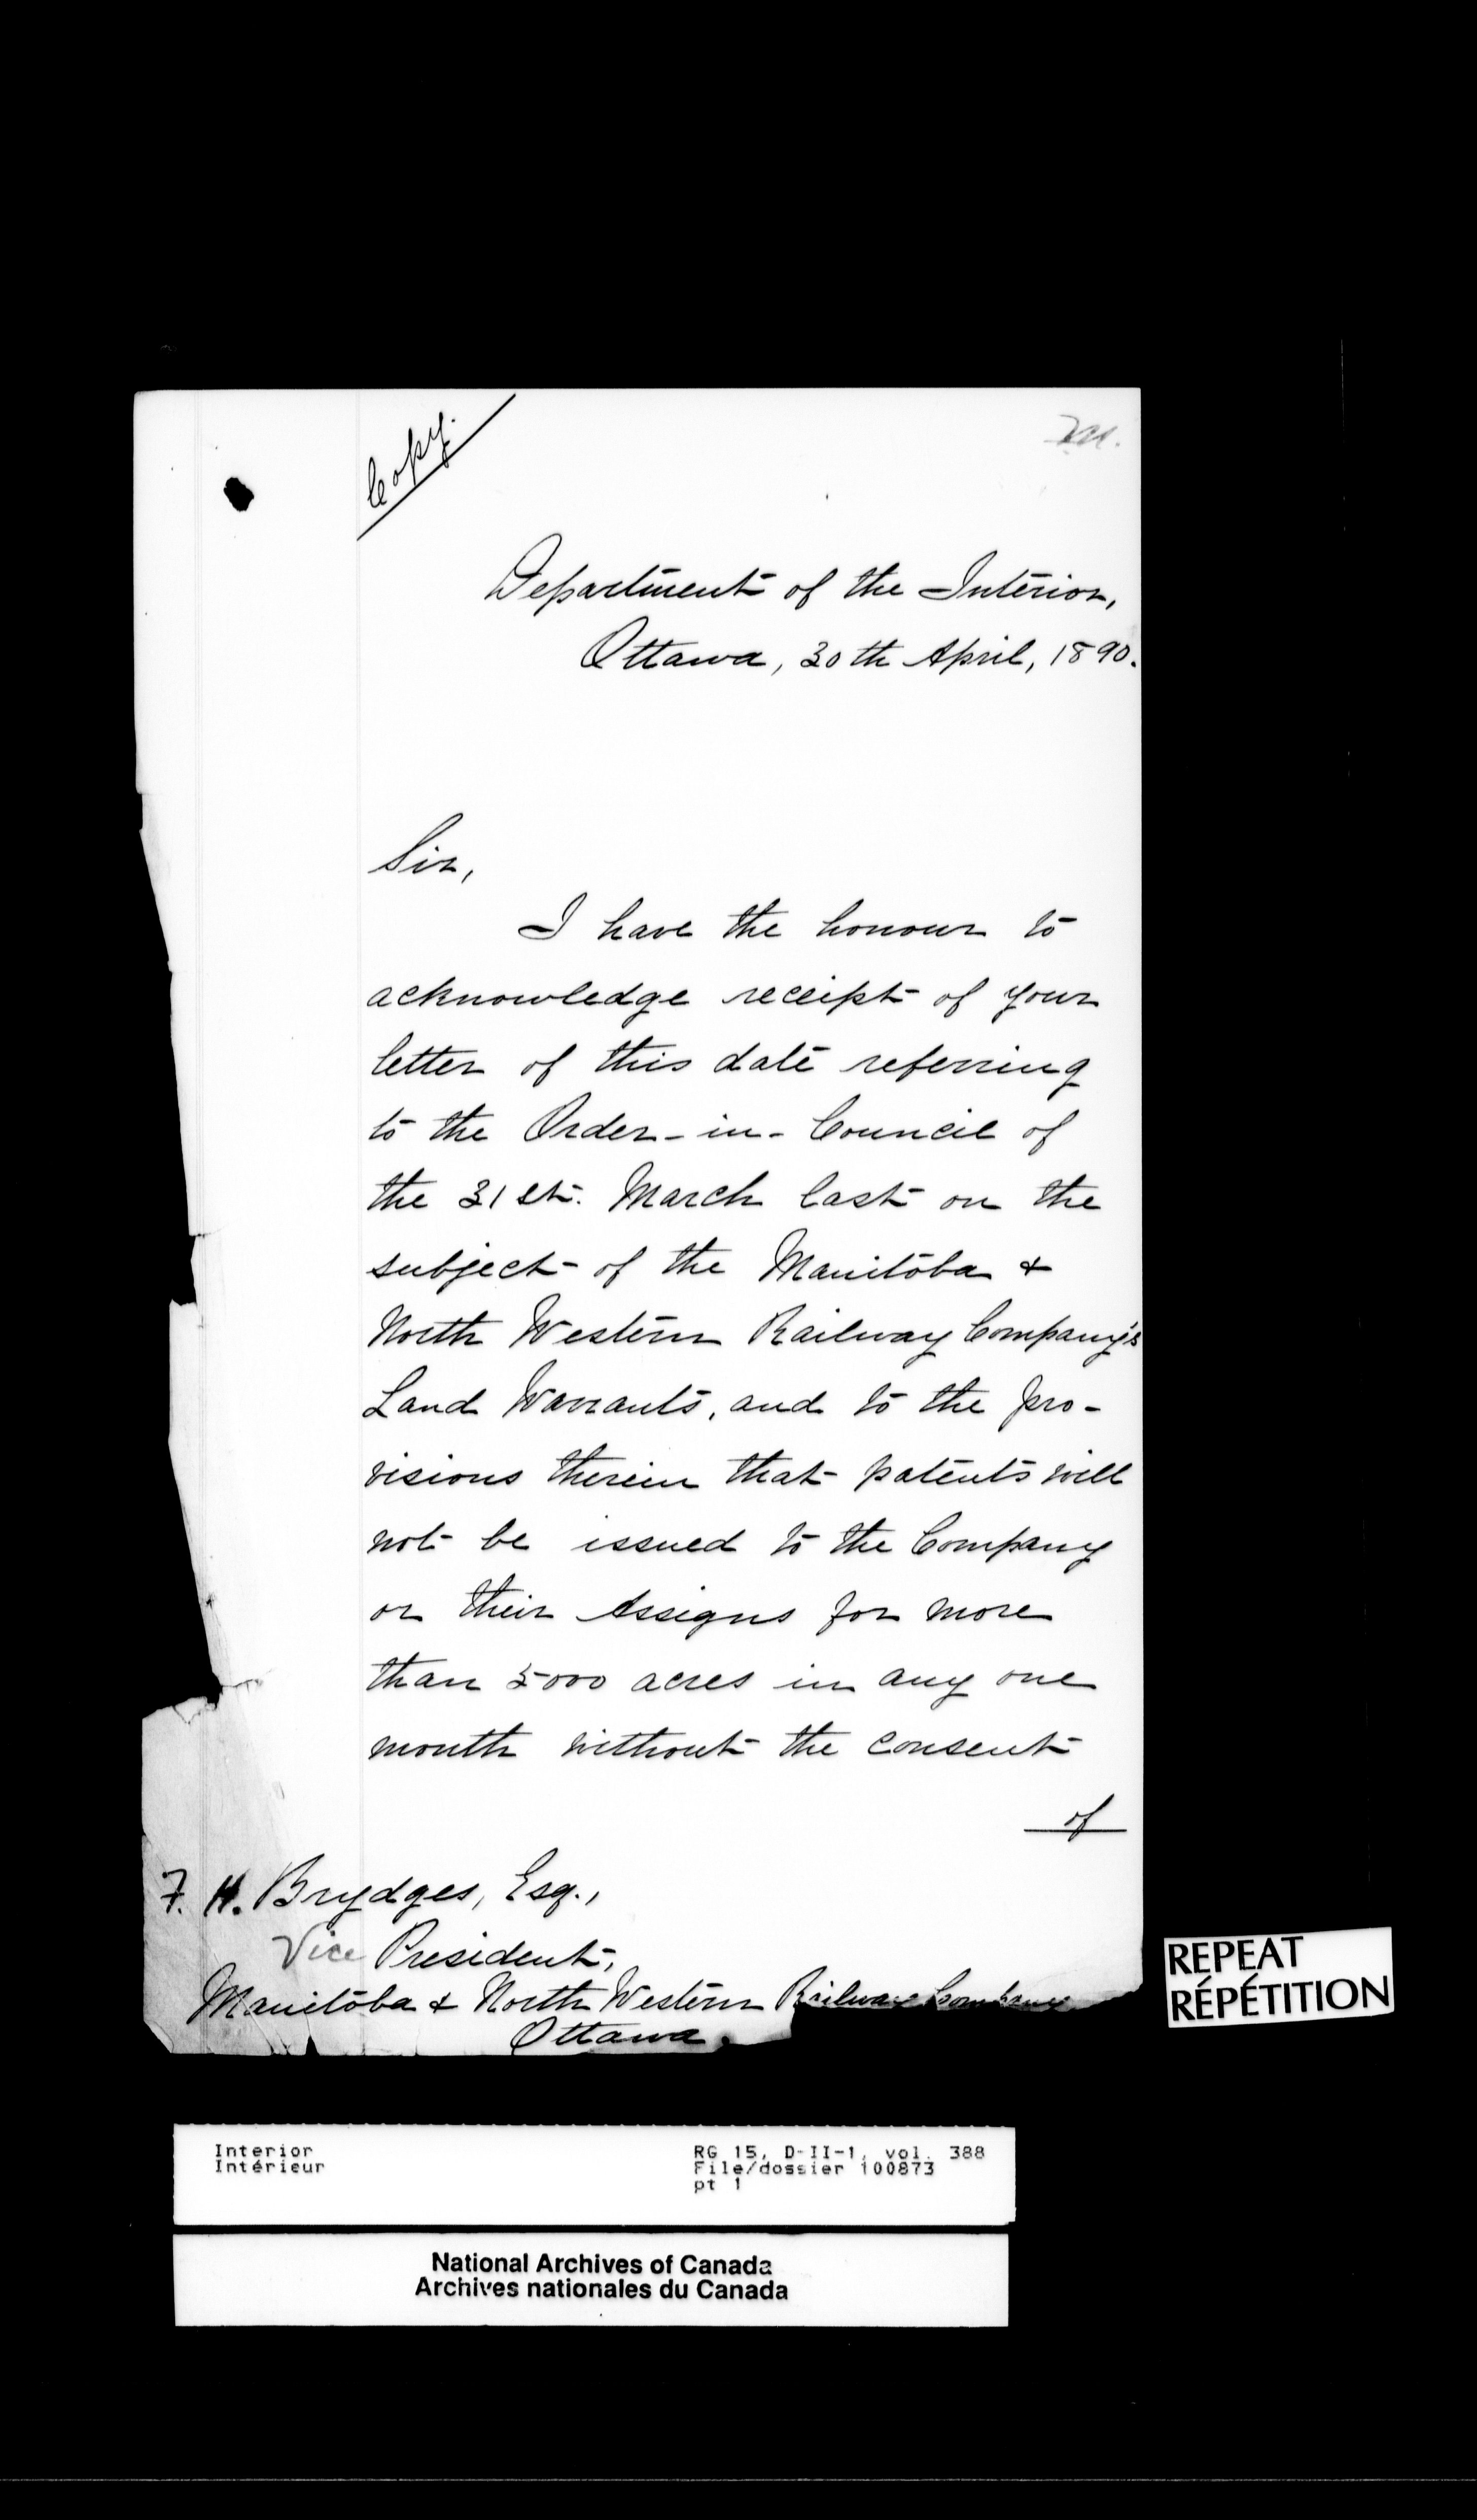 Copy.
Department of the Interior,
Ottawa, 30th April, 1890.
Sir,
I have the honour to
acknowledge receipt of your
letter of this date referring
to the Order-in-Council of
the 31st. March last on the
subject of the Manitoba &
North Western Railway Company's
Land Warrants, and to the pro-
visions therein that patents will
not be issued to the Company
or their Assigns for more
than 5000 acres in any one
month without the consent
of
F. H. Brydges, Esq.,
Vice President,
Manitoba & North Western Railway Company
Ottawa.
REPEAT
RÉPÉTITION
Interior
Intérieur
RG 15, D-II-1, vol. 388
File/dossier 100873
pt 1
National Archives of Canada
Archives nationales du Canada